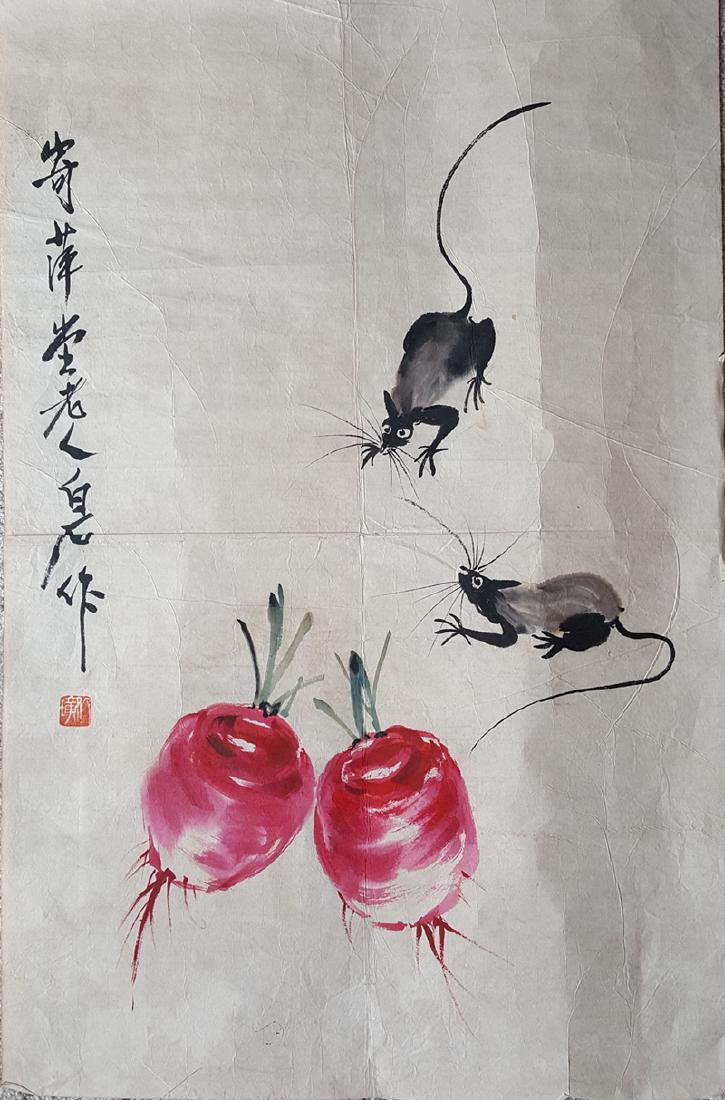 寄萍堂老人白石作